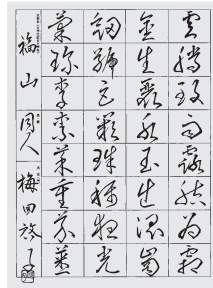 雲騰致雨露結為霜
金生麗水玉出崑岡
劔號巨闕珠稱夜光
菓珍李柰菜重芥薑
福山
同人
梅田